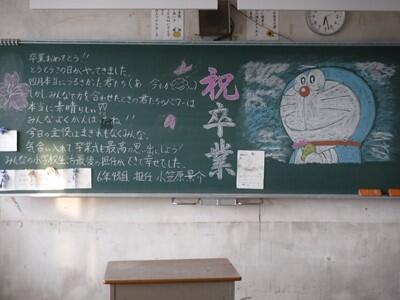 卒業おめでとう!!
とうとうこの日がやってきました
四月本当にうるさかった君たち(あ 今もか)
しかしみんなで力を合わせたときの君たちのパワーは
本当に素晴らしい!!
みんなよくがんばったね!!
今日の主役はまぎれもなくみんな。
気合い入れて卒業式も最高の思い出にしよう!
みんなの小学校生活最後の担任ができて幸せでした。
6年 組 担任 小笠原
祝卒業